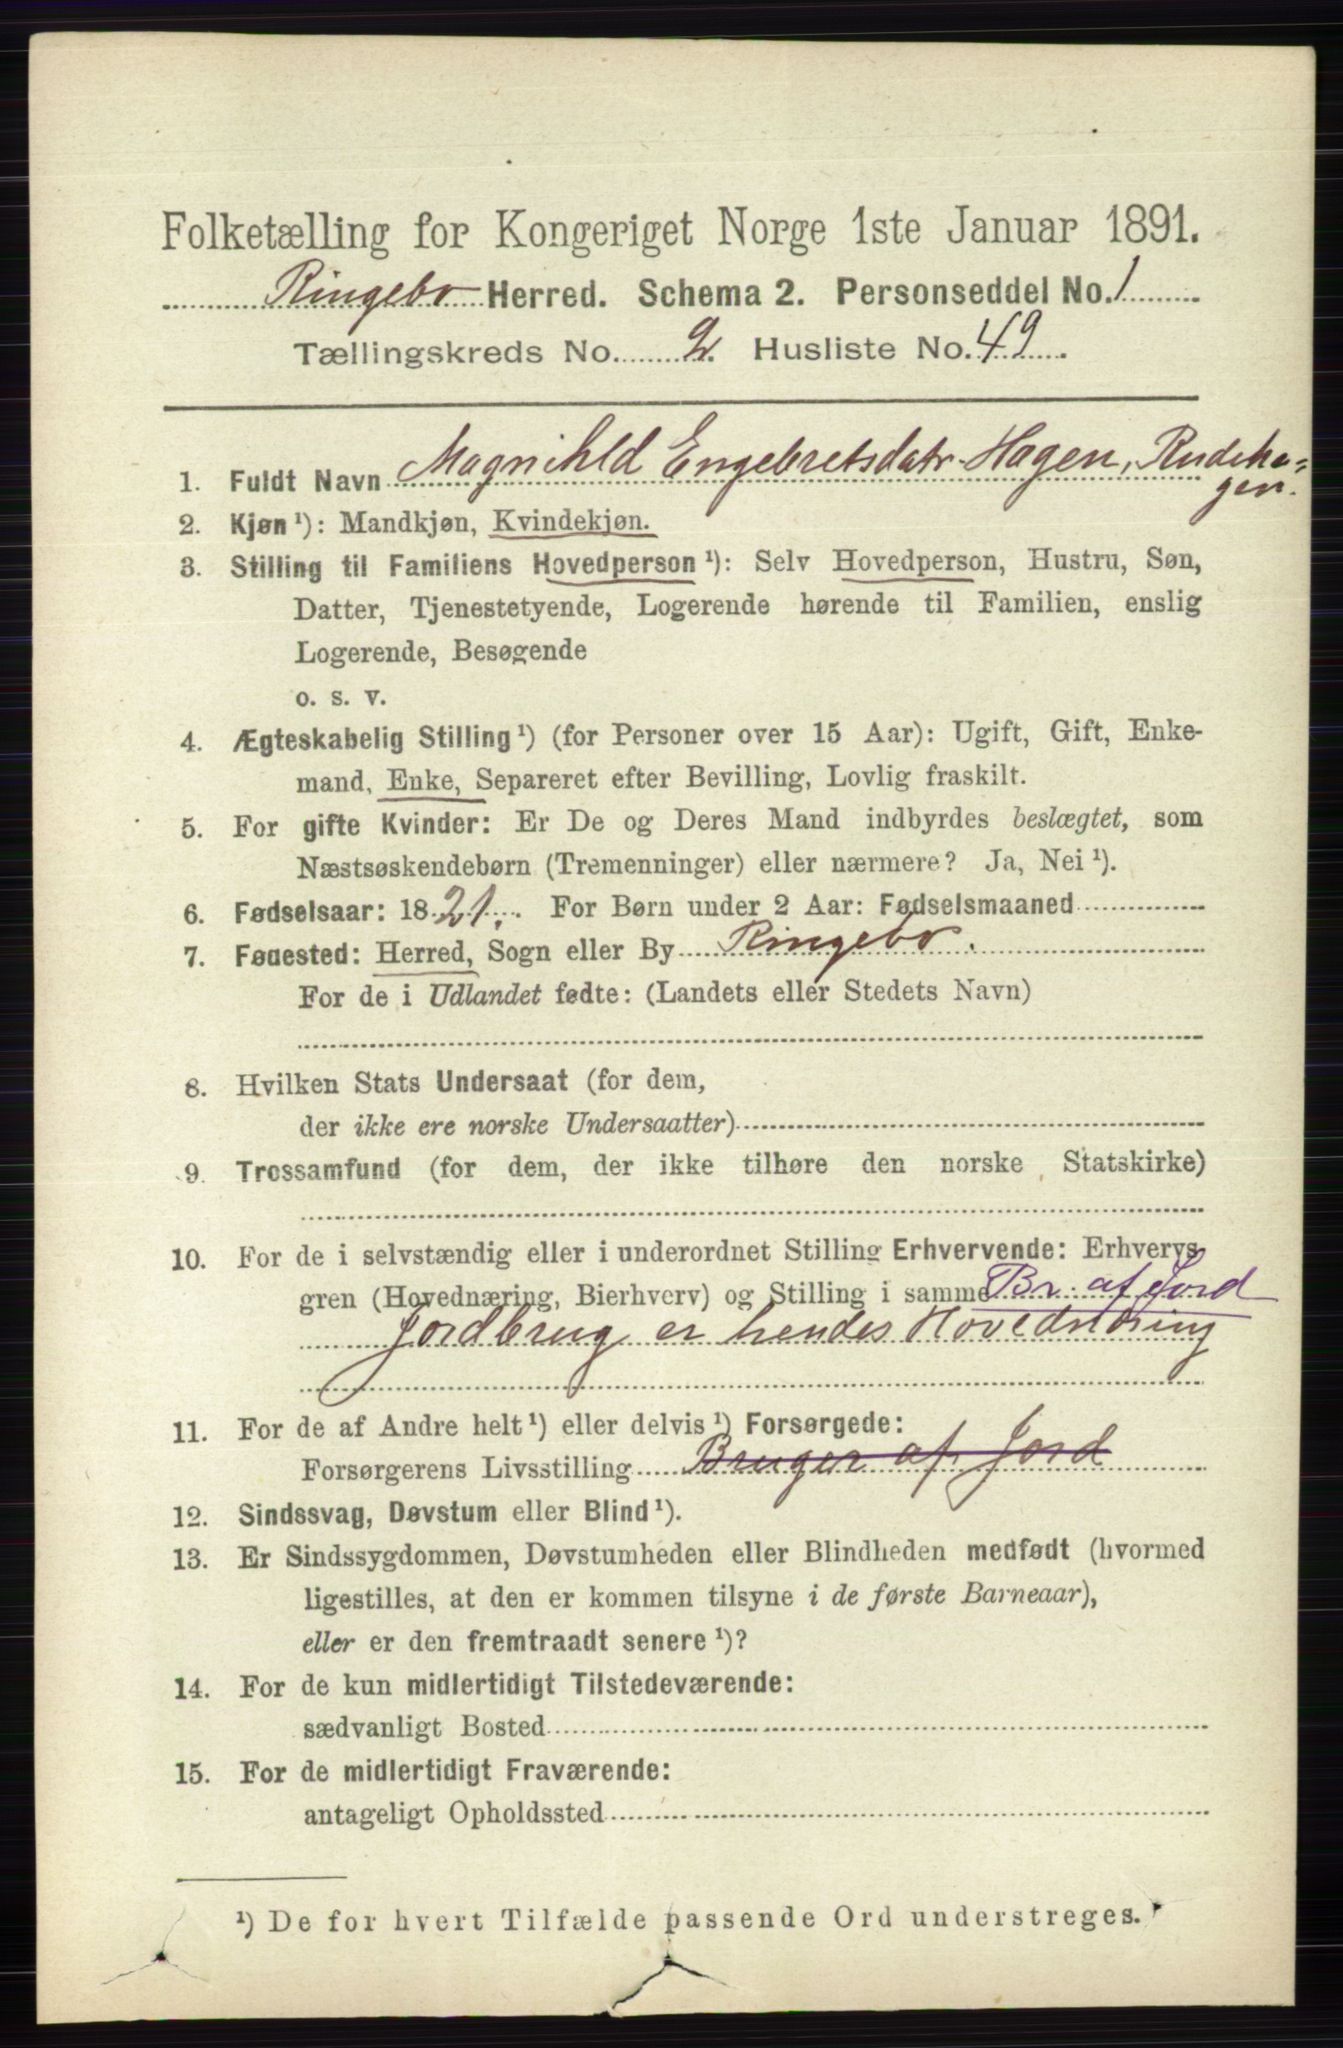 Folketælling for Kongeriget Norge 1ste Januar 1891.
Ringebo Herred. Schema 2. Personseddel No. 1
Tællingskreds No. 2. Husliste No. 49.
1. Fuldt Navn Magnihld Engebretsdatr. Hagen, Rudeha=
gen.
2. Kjøn ¹): Mandkjøn, Kvindekjøn.
3. Stilling til Familiens Hovedperson ¹): Selv Hovedperson, Hustru, Søn,
Datter, Tjenestetyende, Logerende hørende til Familien, enslig
Logerende, Besøgende
o. s. v.
4. Ægteskabelig Stilling ¹) (for Personer over 15 Aar): Ugift, Gift, Enke-
mand, Enke, Separeret efter Bevilling, Lovlig fraskilt.
5. For gifte Kvinder: Er De og Deres Mand indbyrdes beslægtet, som
Næstsøskendebørn (Tremenninger) eller nærmere? Ja, Nei ¹).
6. Fødselsaar: 1821. For Børn under 2 Aar: Fødselsmaaned
7. Fødested: Herred, Sogn eller By Ringebo.
For de i Udlandet fødte: (Landets eller Stedets Navn)
8. Hvilken Stats Undersaat (for dem,
der ikke ere norske Undersaatter)
9. Trossamfund (for dem, der ikke tilhøre den norske Statskirke)
10. For de i selvstændig eller i underordnet Stilling Erhvervende: Erhvervs-
gren (Hovednæring, Bierhverv) og Stilling i samme Br. af Jord
Jordbrug er hendes Hovednæring
11. For de af Andre helt ¹) eller delvis ¹) Forsørgede:
Forsørgerens Livsstilling Bruger af Jord
12. Sindssvag, Døvstum eller Blind ¹).
13. Er Sindssygdommen, Døvstumheden eller Blindheden medfødt (hvormed
ligestilles, at den er kommen tilsyne i de første Barneaar),
eller er den fremtraadt senere ¹)?
14. For de kun midlertidigt Tilstedeværende:
sædvanligt Bosted
15. For de midlertidigt Fraværende:
antageligt Opholdssted
¹) De for hvert Tilfælde passende Ord understreges.